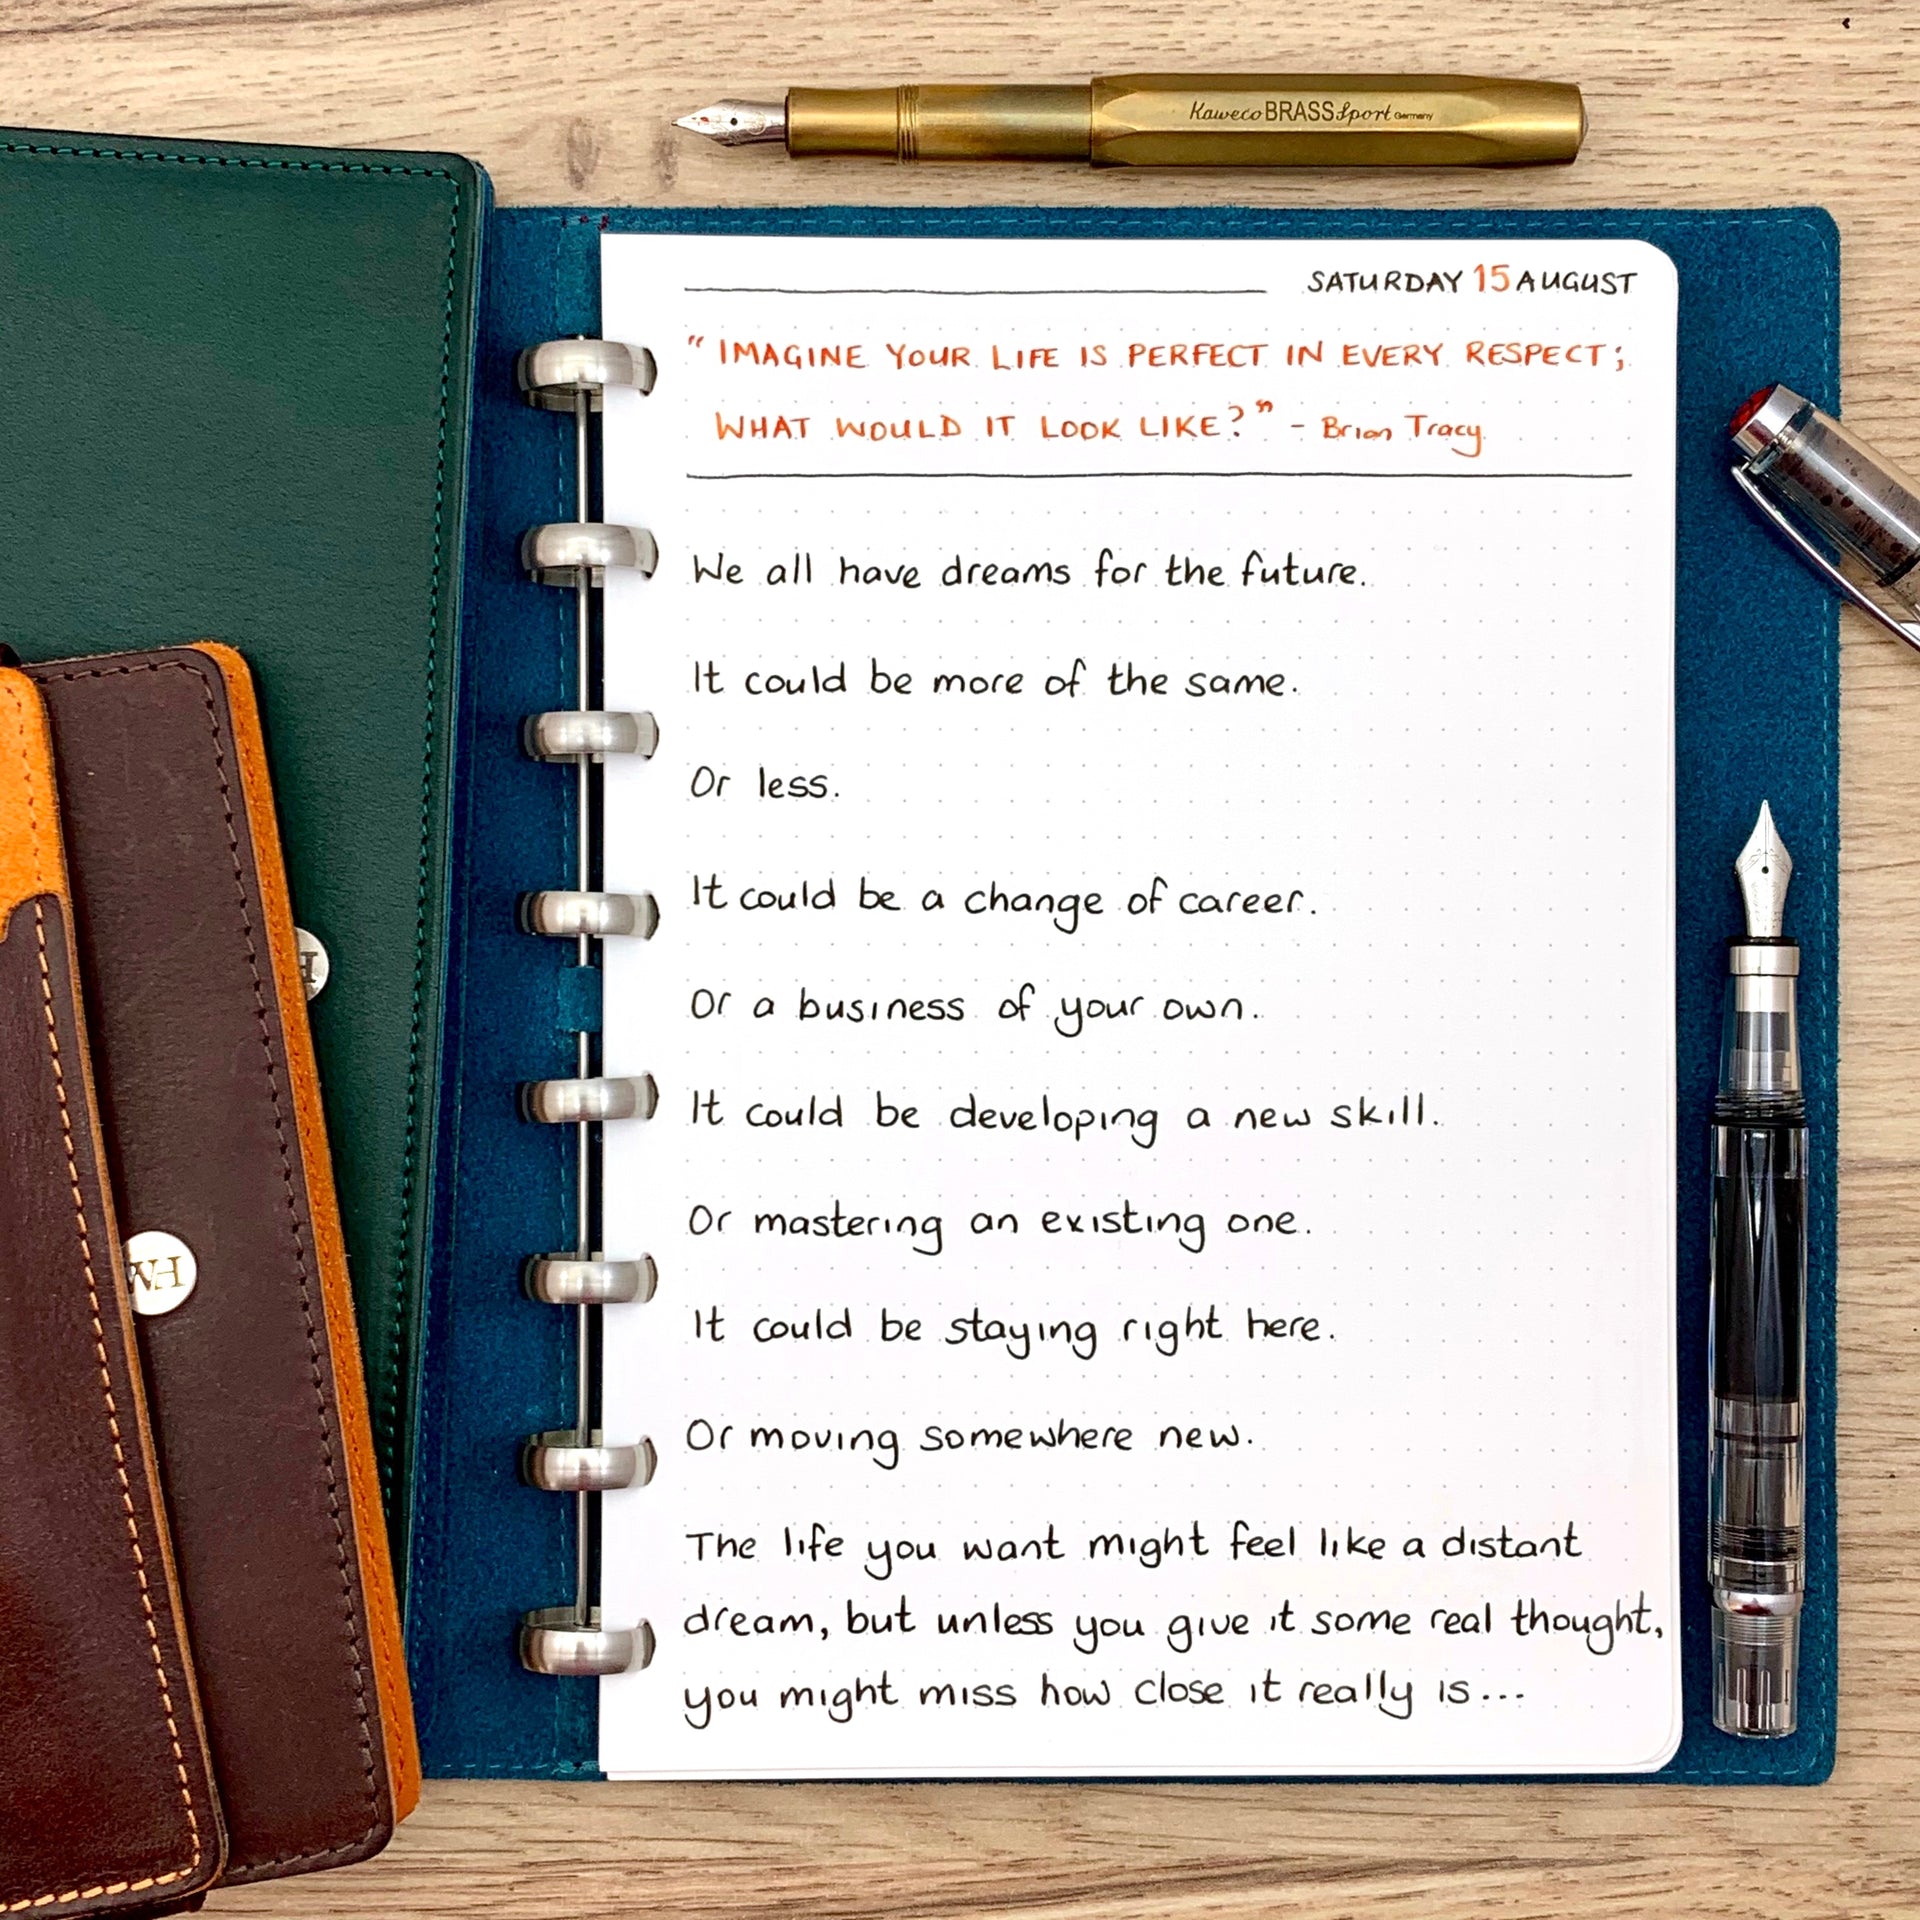 Kaweco BRASS Sport Germany
SATURDAY 15 AUGUST
"IMAGINE YOUR LIFE IS PERFECT IN EVERY RESPECT;
WHAT WOULD IT LOOK LIKE?" - Brian Tracy
We all have dreams for the future.
It could be more of the same.
Or less.
It could be a change of career.
Or a business of your own.
It could be developing a new skill.
Or mastering an existing one.
It could be staying right here.
Or moving somewhere new.
The life you want might feel like a distant
dream, but unless you give it some real thought,
you might miss how close it really is...